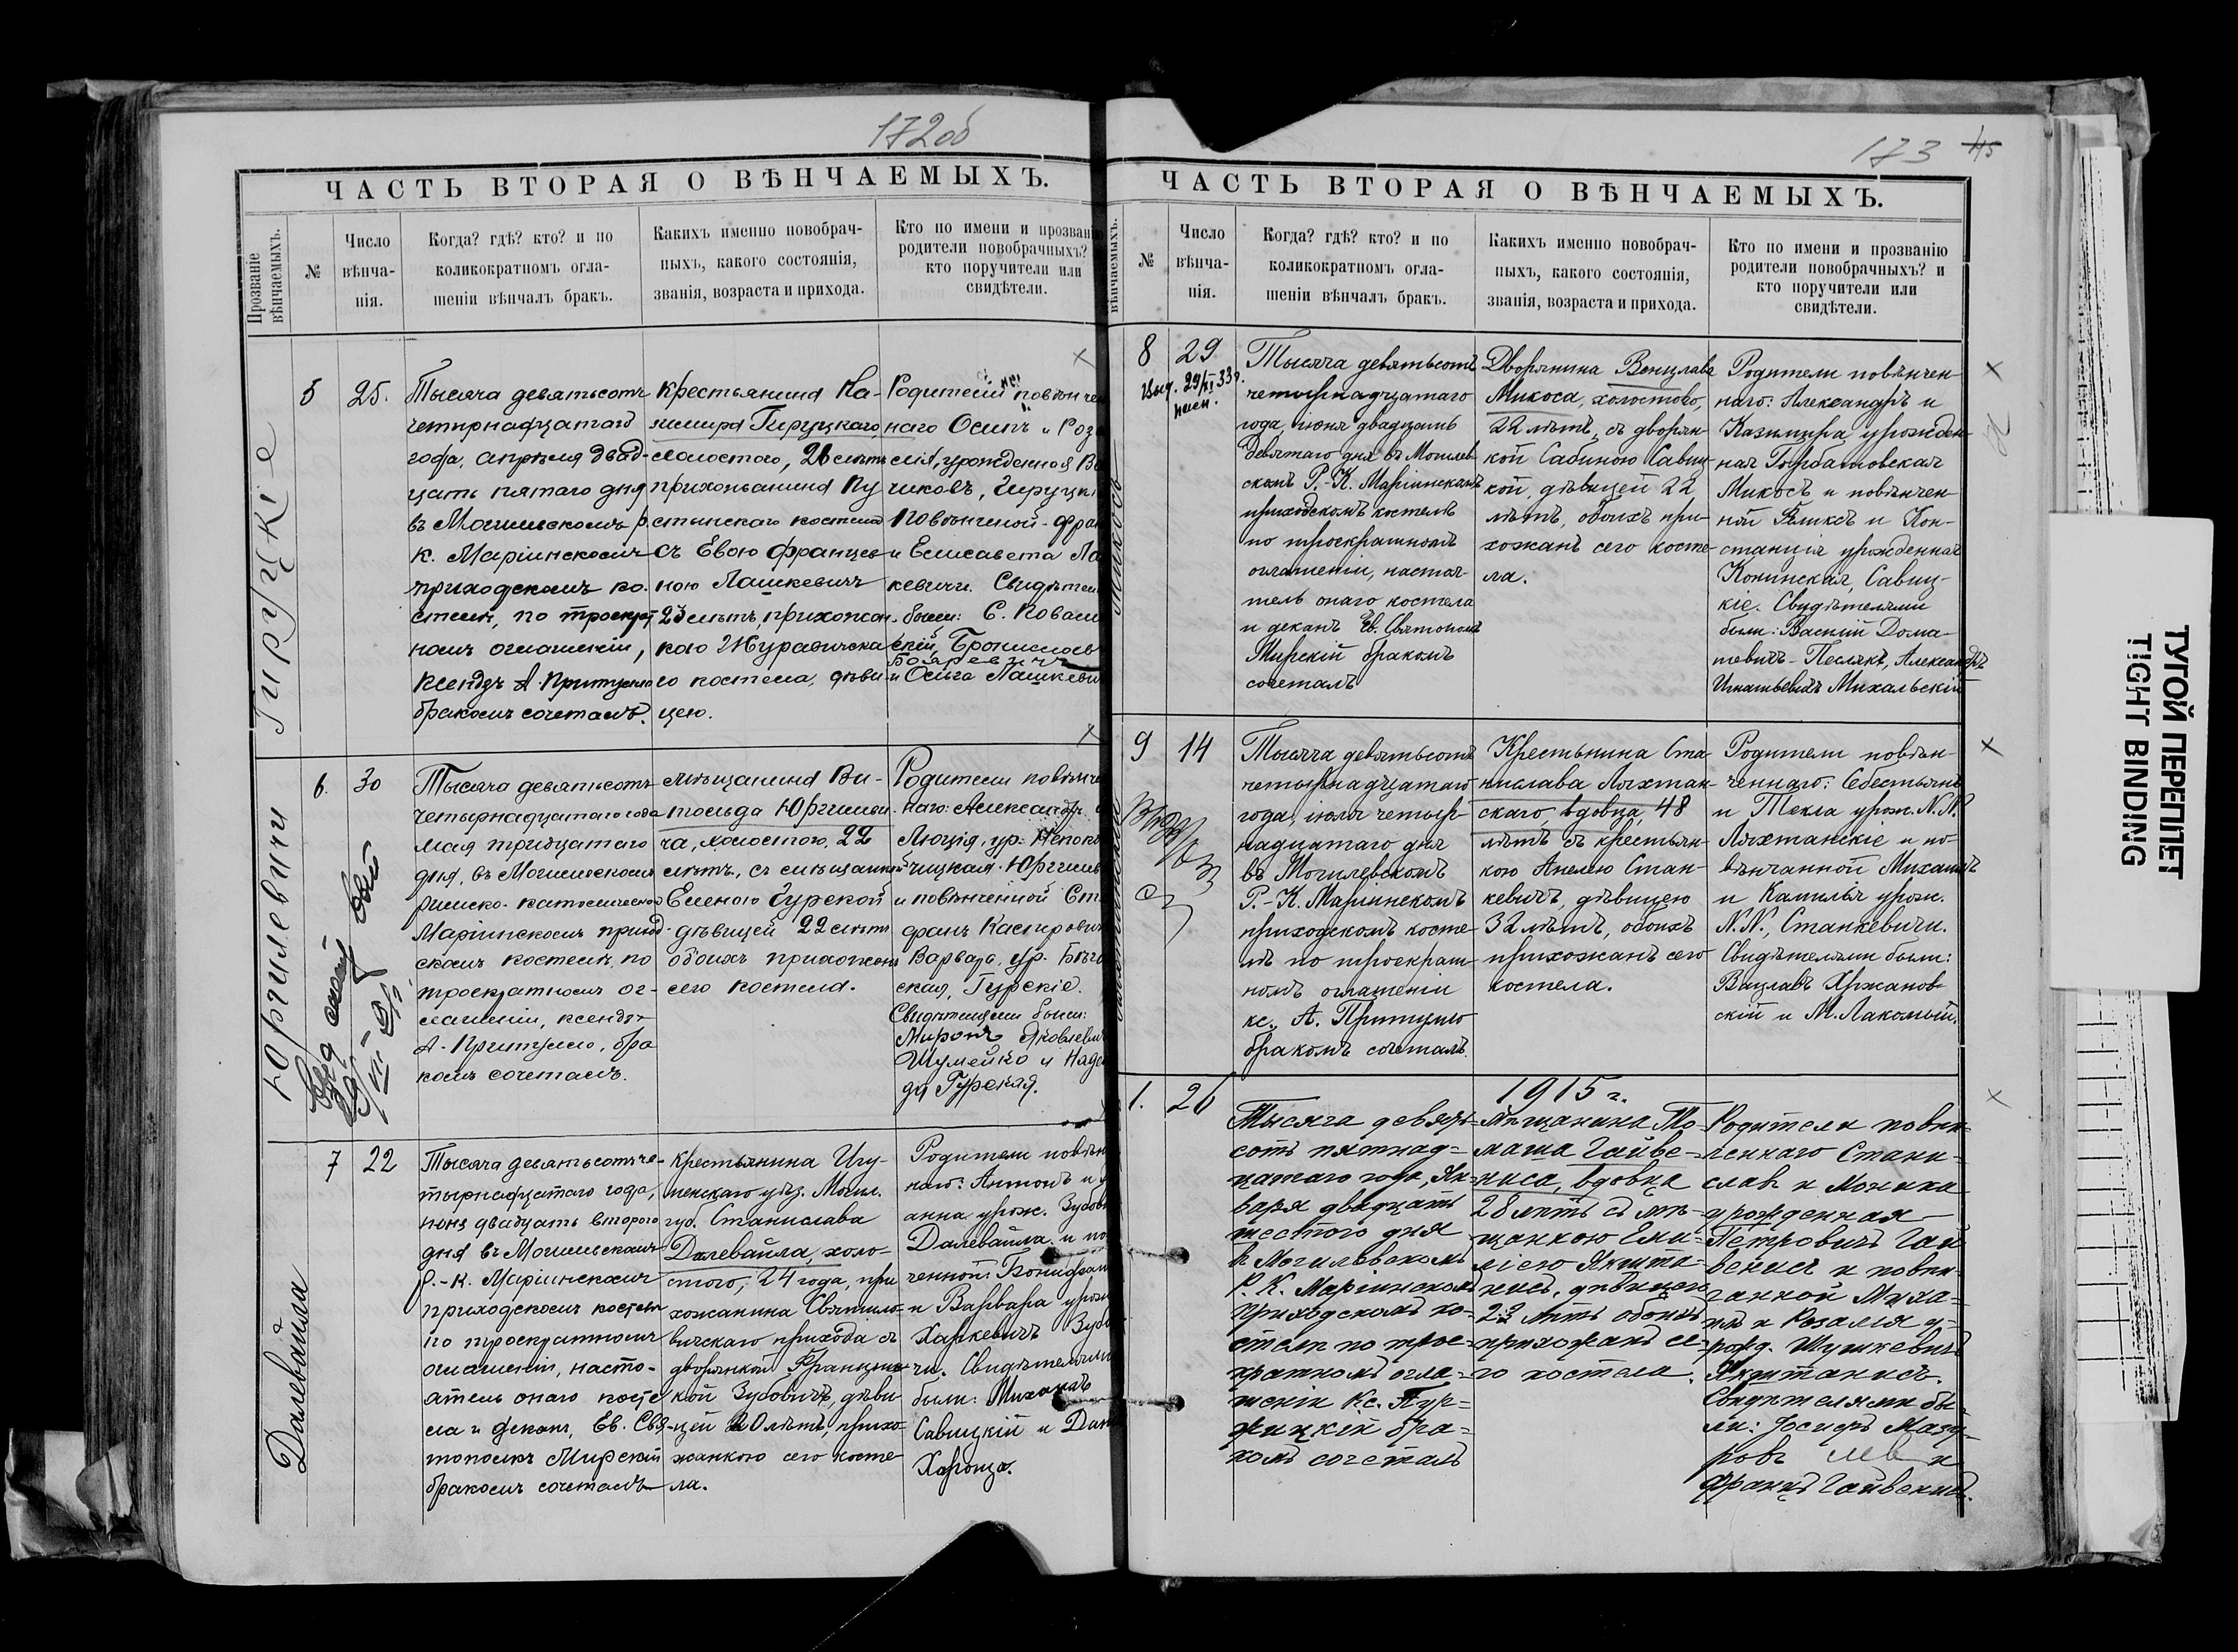 172 об
ЧАСТЬ ВТОРАЯ О ВѢНЧАЕМЫХЪ.
Прозваніе вѣнчаемыхъ.
№
Число вѣнча-
нія.
Когда? гдѣ? кто? и по
коликократномъ огла-
шеніи вѣнчалъ бракъ.
Какихъ именно новобрач-
ныхъ, какого состоянія,
званія, возраста и прихода.
Кто по имени и прозванію
родители новобрачныхъ?
кто поручители или
свидѣтели.
5
25.
Тысяча девятьсотъ
четырнадцатаго
года, апрѣля двад-
цать пятаго дня
въ Могилевскомъ р.
к. Маріинскомъ
приходскомъ ко-
стелѣ, по троекрат
номъ оглашеніи,
ксендзъ А. Притулло
бракомъ сочеталъ.
крестьянина Ка-
зимира Гируцкаго,
холостого, 26 лѣтъ
прихожанина
костела
съ Евою Францев
ною Лашкевичъ
23 лѣтъ, прихожан-
кою Журавичска
го костела, дѣви-
цею.
Родители повѣнчен
наго Осипъ и Роза
лія, урожденная
Гируцкі
Повѣнченой - Фран
и Елисавета Ла
кевичи. Свидѣтел
были: С. Ковал
скій, Брониславъ
Бояревичъ
и Ольга Лашкеви
Юргилевичи
6.
30
Тысяча девятьсотъ
четырнадцатаго года
мая тридцатаго
дня, въ Могилевскомъ
римско-католическомъ
Маріинскомъ приход-
скомъ костелѣ, по
троекратномъ ог-
лашеніи, ксендзъ
А. Притулло, бра
комъ сочеталъ.
мѣщанина Ви-
тольда Юргилеви-
ча, холостого, 22
лѣтъ, съ мѣщанкой
Еленою Гурской
дѣвицей 22 лѣтъ
обоихъ прихожанъ
сего костела.
Родители повѣнче
наго: Александръ и
Люція, ур. Непоко
чицкая Юргилев
и повѣнченной Сте
фанъ Каспирович
Варвара, ур.
ская, Гурскіе.
Свидѣтелями были:
Миронъ Яковлевич
Шумейко и Наде
да Гурская.
Далевайла
7
22
Тысяча девятьсотъ че-
тырнадцатаго года,
іюня двадцать второго
дня въ Могилевскомъ
Р.-К. Маріинскомъ
приходскомъ костелѣ
по троекратномъ
оглашеніи, насто-
ятель онаго косте
ла и деканъ, Ев. Свя-
тополкъ Мирскій
бракомъ сочеталъ
крестьянина Игу-
менскаго уѣз. Могил.
губ. Станислава
Далевайла, холо-
стого, 24 года, при
хожанина Святило-
вичскаго прихода съ
дворянкой Францишк-
кой Зубовичъ, дѣви
цей 20 лѣтъ, прихо-
жанкою сего косте
ла.
Родители повѣнч
наго: Антонъ и
анна урож. Зубов
Далевайла и по
ченной: Бонифат
и Варвара урож
Харкевичъ Зубо
чи. Свидѣтелями
были: Михаилъ
Савицкій и Дан
Харонца.
173
ЧАСТЬ ВТОРАЯ О ВѢНЧАЕМЫХЪ.
вѣнчаемыхъ.
№
Число
вѣнча-
нія.
Когда? гдѣ? кто? и по
коликократномъ огла-
шеніи вѣнчалъ бракъ.
Какихъ именно новобрач-
ныхъ, какого состоянія,
званія, возраста и прихода.
Кто по имени и прозванію
родители новобрачныхъ? и
кто поручители или
свидѣтели.
8
29
Тысяча девятьсотъ
четырнадцатаго
года, іюня двадцать
девятаго дня въ Могилев-
скомъ Р.-К. Маріинскомъ
приходскомъ костелѣ
по троекратномъ
оглашеніи, настоя-
тель онаго костела
и деканъ Ев. Святополкъ
Мирскій бракомъ
сочеталъ
Дворянина Венцлава
Микоса, холостого,
22 лѣтъ, съ дворян-
кой Сабиною Савиц-
кой, дѣвицей 22
лѣтъ, обоихъ при-
хожанъ сего косте-
ла.
Родители повѣнчен-
наго: Александръ и
Казимира урожден-
ная Горбатовская
Микосъ и повѣнчен-
ной Феликсъ и Кон-
станція урожденная
Конинская, Савиц-
кіе. Свидѣтелями
были: Василій Дома-
тевичъ-Песлякъ, Александръ
Игнатьевичъ Михальскій
9
14
Тысяча девятьсотъ
четырнадцатаго
года, іюля четыр-
надцатаго дня
въ Могилевскомъ
Р.-К. Маріинскомъ
приходскомъ косте-
лѣ по троекрат-
номъ оглашеніи
кс. А. Притулло
бракомъ сочеталъ
Крестьянина Ста-
нислава Ляхтан-
скаго, вдовца, 48
лѣтъ съ крестьян-
кою Анелею Стан-
кевичъ, дѣвицею
32 лѣтъ, обоихъ
прихожанъ сего
костела.
Родители повѣн-
ченнаго: Себестьянъ
и Текла урож. N.N.
Ляхтанскіе и по-
вѣнчанной Михаилъ
и Камилья урож.
N.N., Станкевичи.
Свидѣтелями были:
Вацлавъ Хржанов-
скій и М. Лакомый.
1915 г.
1.
26
Тысяча девять-
сотъ пятнад-
цатаго года, Ян-
варя двадцать
шестого дня
въ Могилевскомъ
Р. К. Маріинскомъ
приходскомъ ко-
стелѣ по трое-
кратномъ огла-
шеніи Кс.
бра-
комъ сочеталъ
Мѣщанина То-
маша Гайве-
ниса, вдовца
28 лѣтъ съ мѣ-
щанкою Эми-
ліею Якшта-
нисъ, дѣвицею
23 лѣтъ обоихъ
прихожанъ се-
го костела.
Родители повѣн-
ченнаго Стани-
славъ и Моника
урожденная
Петровичъ Гай
венисъ и повѣн-
чанной Миха-
илъ и Розалія у-
рожд. Шушкевичъ
Якштанисъ.
Свидѣтелями бы-
ли: Іосифъ Мазу-
ровъ и
Францъ Гайвенисъ.
ТУГОЙ ПЕРЕПЛЕТ
TIGHT BINDING